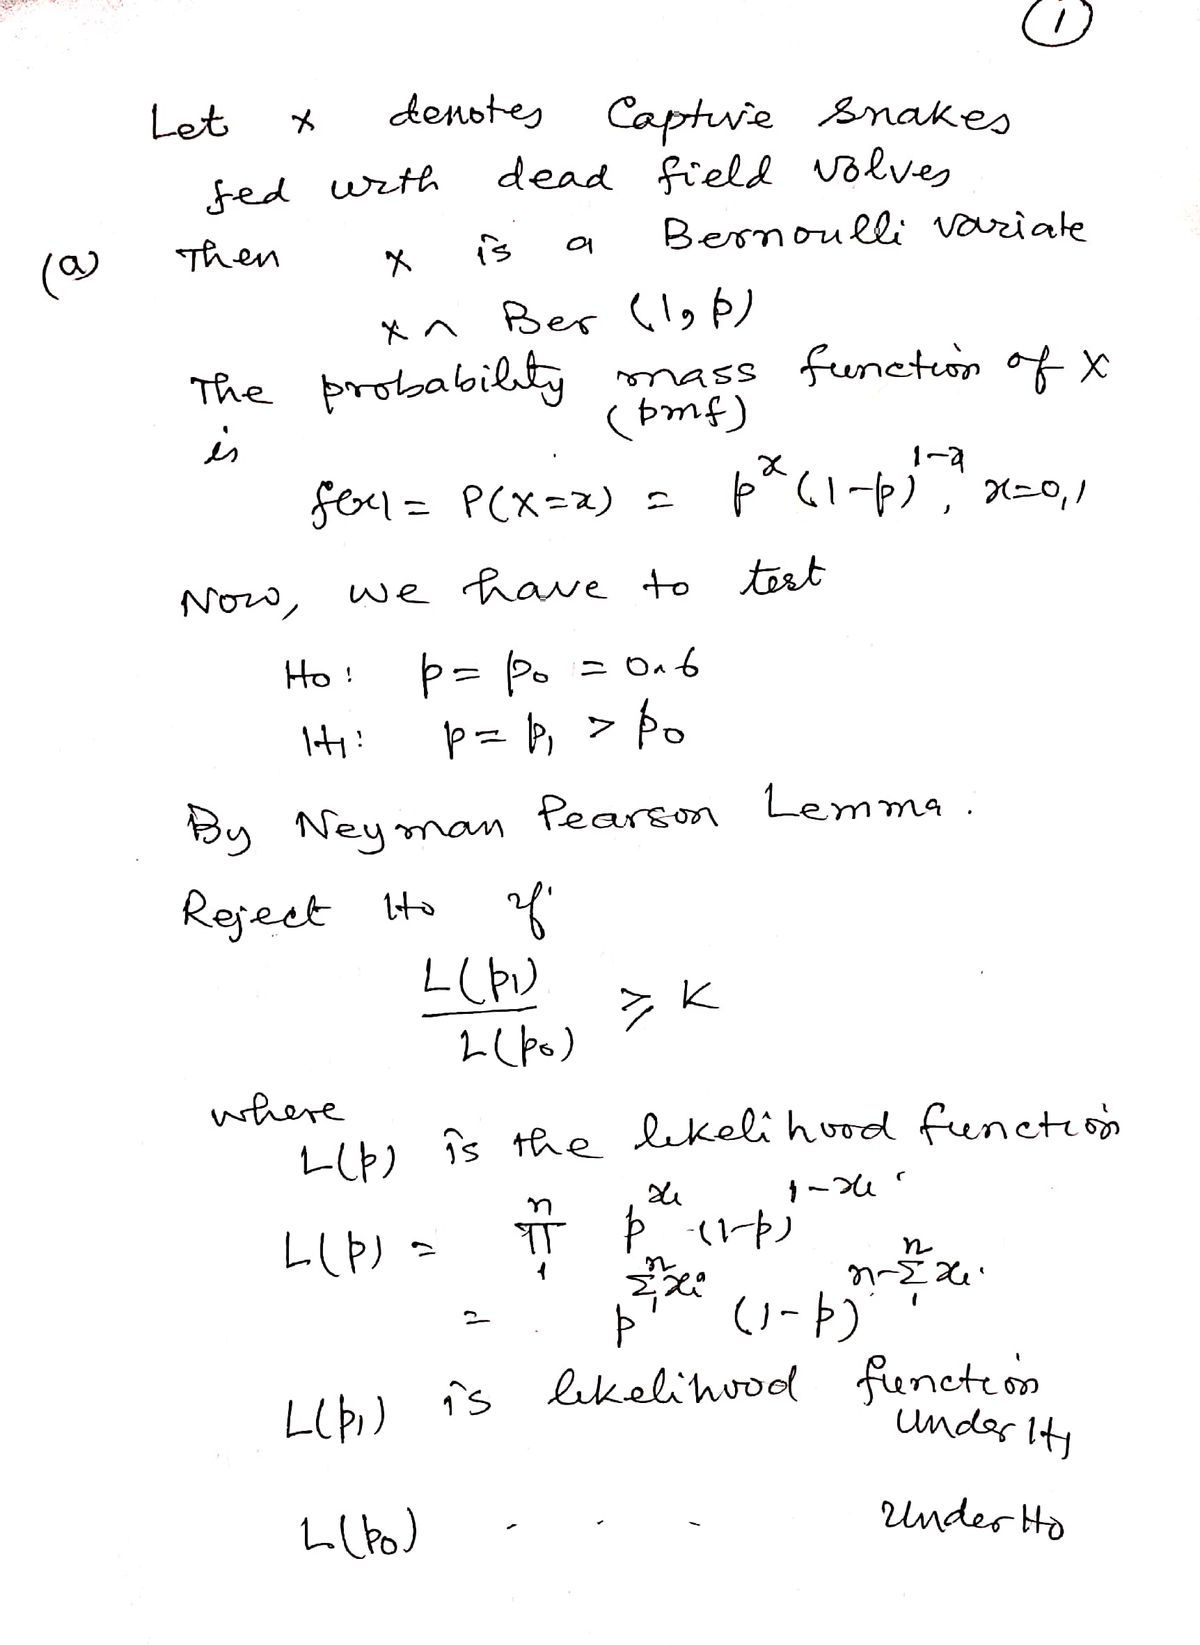 1
Let x denotes Captive Snakes
fed with dead field volves
(a) Then x is a Bernoulli variate
x ~ Ber (1, p)
The probability mass function of X
(pmf)
is
f(x) = P(X=x) = p^x (1-p)^{1-x}, x=0,1
Now, we have to test
H0: p = p0 = 0.6
H1: p = p1 > p0
By Neyman Pearson Lemma.
Reject H0 if
L(p1)
/ L(p0) ≥ K
where
L(p) is the likelihood function
L(p) = ∏_1^n p^{xi} (1-p)^{1-xi}
= p^{∑_1^n xi} (1-p)^{n-∑_1^n xi}
L(p1) is likelihood function
under H1
L(p0) - - - under H0